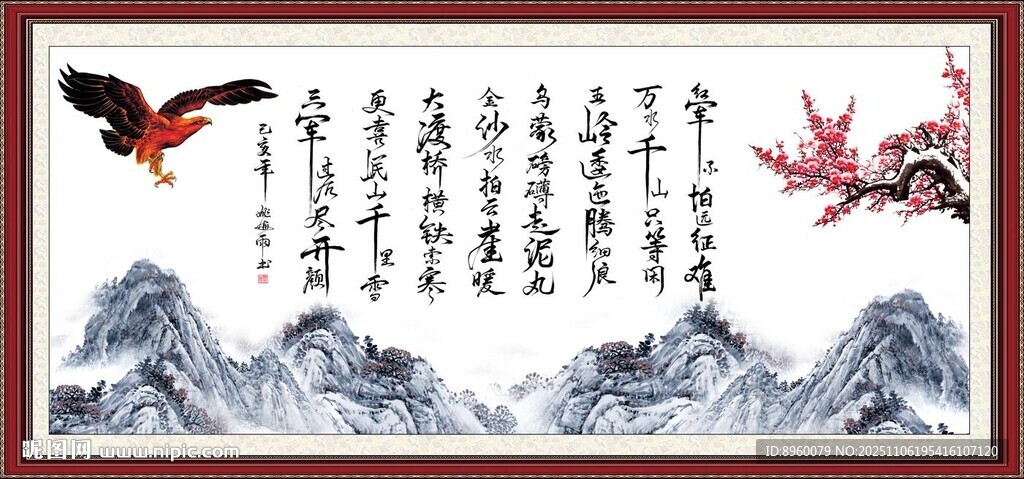 红军不怕远征难
万水千山只等闲
五岭逶迤腾细浪
乌蒙磅礴走泥丸
金沙水拍云崖暖
大渡桥横铁索寒
更喜岷山千里雪
三军过后尽开颜
己亥年
雨书
昵图网 www.nipic.com
ID:8960079 NO:20251106195416107120